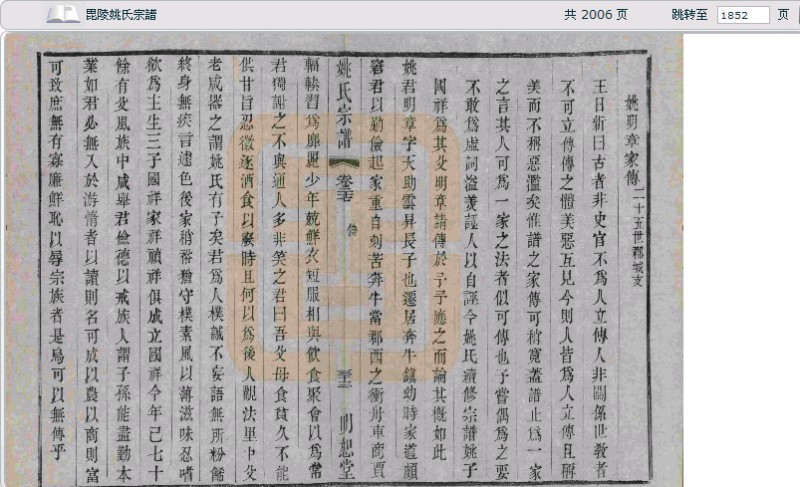 毘陵姚氏宗譜
共 2006 页
跳转至 1852 页
姚明章家傳 二十五世郡城支
王日新曰古者非史官不爲人立傳人非關係世教者
不可立傳傳之體美惡互見今則人皆爲人立傳且稱
美而不稱惡濫矣惟譜之家傳可稍寬蓋譜止爲一家
之言其人可爲一家之法者似可傳也予嘗偶爲之要
不敢爲虛詞溢美誣人以自誣今姚氏續修宗譜姚子
國祥爲其父明章請傳於予予應之而論其概如此
姚君明章字天助雲昇長子也遷居奔牛鎮幼時家道頗
窘君以勤儉起家重自刻苦奔牛當郡西之衝舟車商賈
姚氏宗譜 卷 傳 明恕堂
輻輳習爲靡麗少年競鮮衣短服相與飲食聚會以爲常
君獨謝之不與通人多非笑之君曰吾父母食貧久不能
供甘旨忍徵逐酒食以糜時且何以爲後人觀法里中父
老咸器之謂姚氏有子矣君爲人樸誠不妄語無所粉飾
終身無疾言遽色後家稍裕猶守樸素風以薄滋味忍嗜
欲爲主生三子國祥家祥禎祥俱成立國祥今年已七十
餘有父風族中咸舉君儉德以戒族人謂子孫能盡勤本
業如君必無入於游惰者以讀則名可成以農以商則富
可致庶無有寡廉鮮恥以辱宗族者是烏可以無傳乎